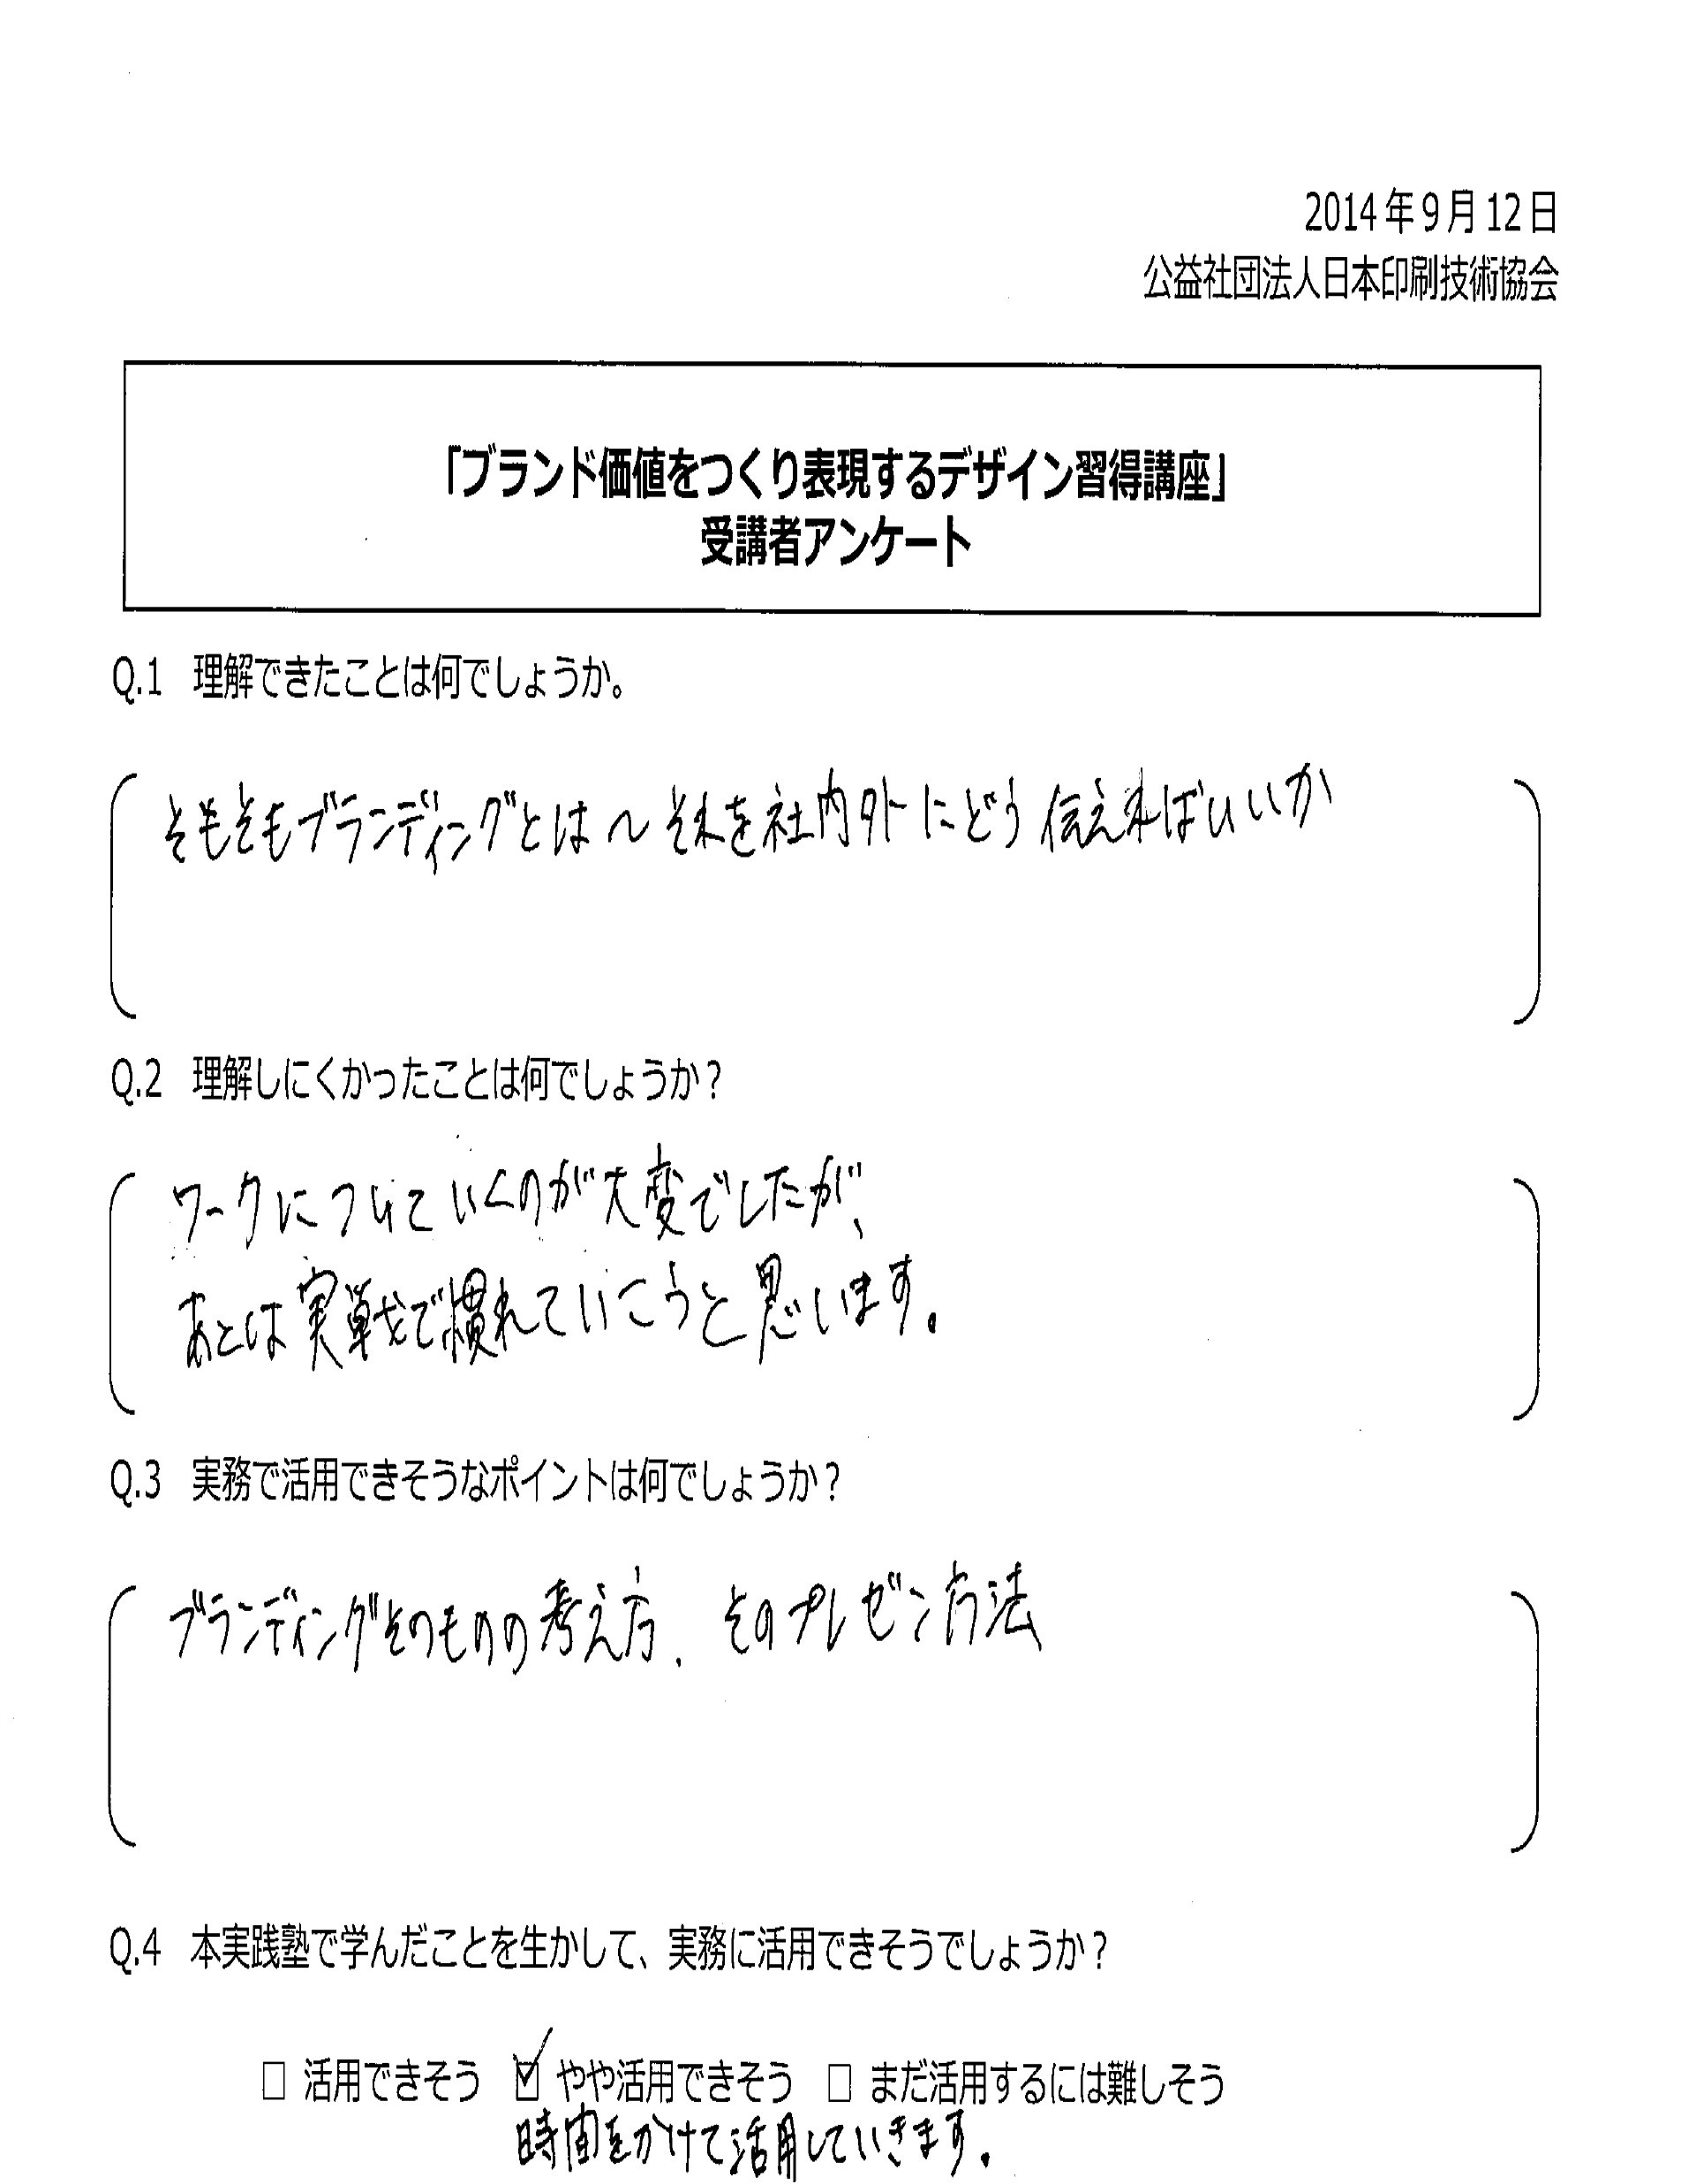 2014年9月12日
公益社団法人日本印刷技術協会
「ブランド価値をつくり表現するデザイン習得講座」
受講者アンケート
Q.1 理解できたことは何でしょうか。
そもそもブランディングとは〜それを社内外にどう伝えればいいか
Q.2 理解しにくかったことは何でしょうか？
ワークについていくのが大変でしたが、
あとは実戦で慣れていこうと思います。
Q.3 実務で活用できそうなポイントは何でしょうか？
ブランディングそのものの考え方、そのプレゼン方法
Q.4 本実践塾で学んだことを生かして、実務に活用できそうでしょうか？
□ 活用できそう ☑ やや活用できそう □ まだ活用するには難しそう
時間をかけて活用していきます。